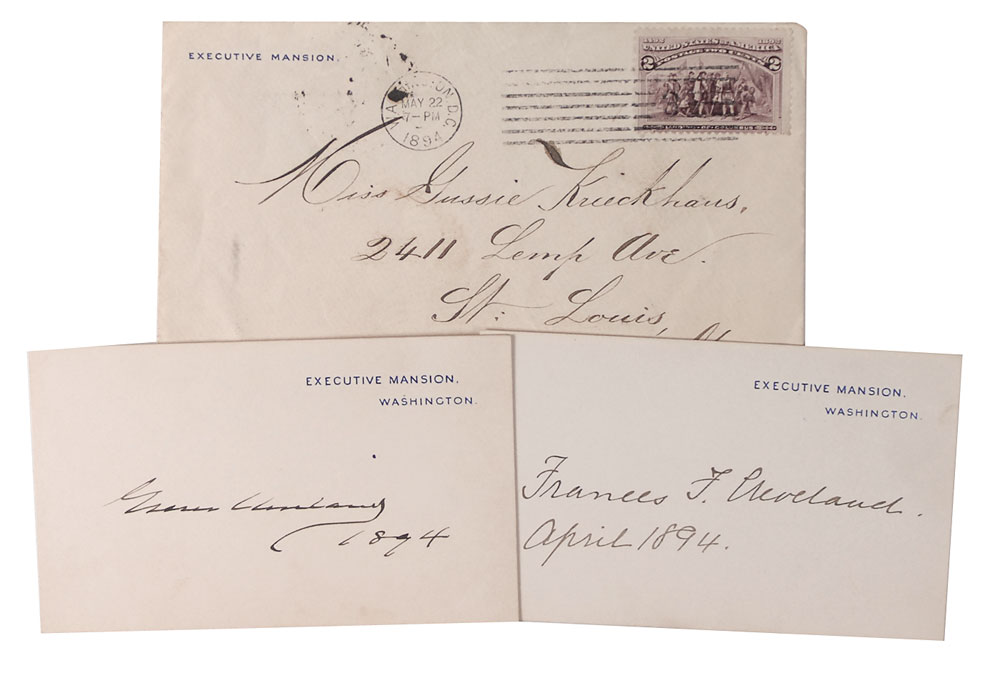 EXECUTIVE MANSION.
WASHINGTON D.C.
MAY 22
7-PM
1894
1492 1892
UNITED STATES OF AMERICA
POSTAGE TWO CENTS
2 2
LANDING OF COLUMBUS
Miss Gussie Krieckhaus,
2411 Lemp Ave.
St. Louis,
EXECUTIVE MANSION,
WASHINGTON.
Grover Cleveland
1894
EXECUTIVE MANSION,
WASHINGTON.
Frances F. Cleveland.
April 1894.